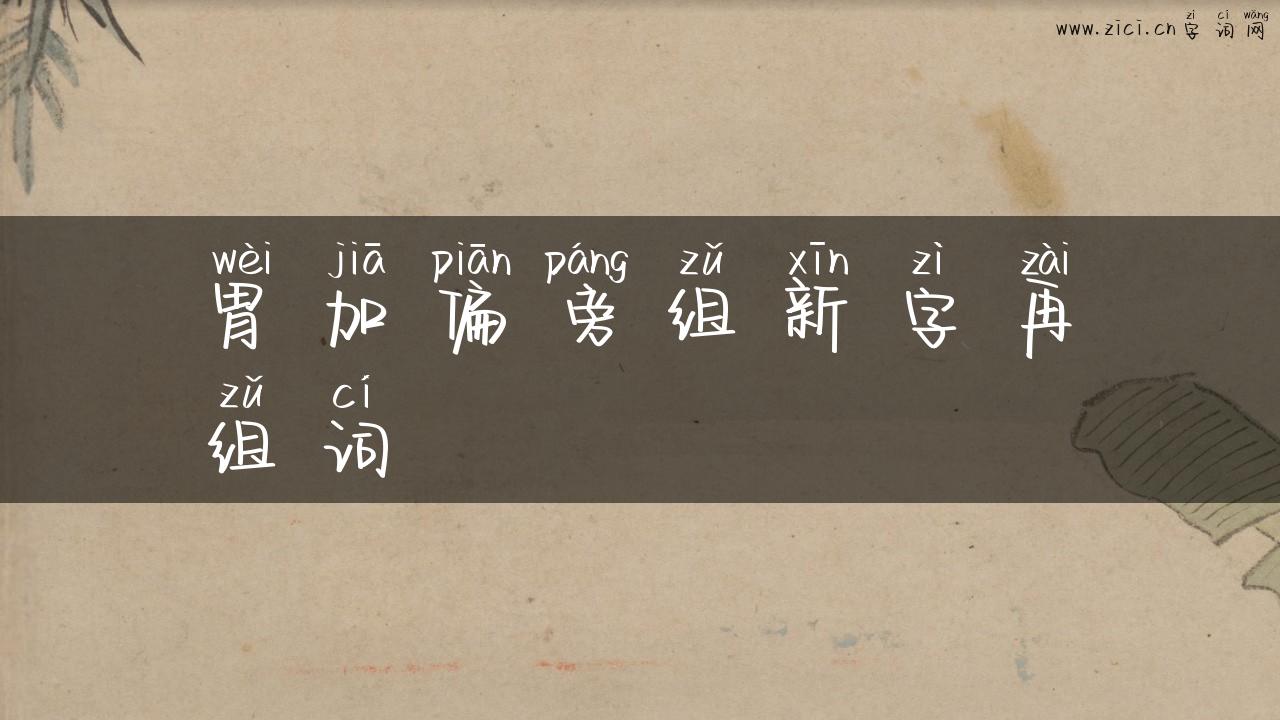 zì cí wǎng
www.zici.cn 字词网
wèi jiā piān páng zǔ xīn zì zài
胃加偏旁组新字再
zǔ cí
组词